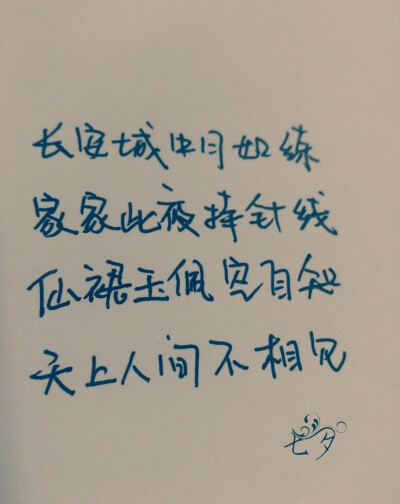 长安城中月如练
家家此夜持针线
仙裙玉佩空自知
天上人间不相见
七夕